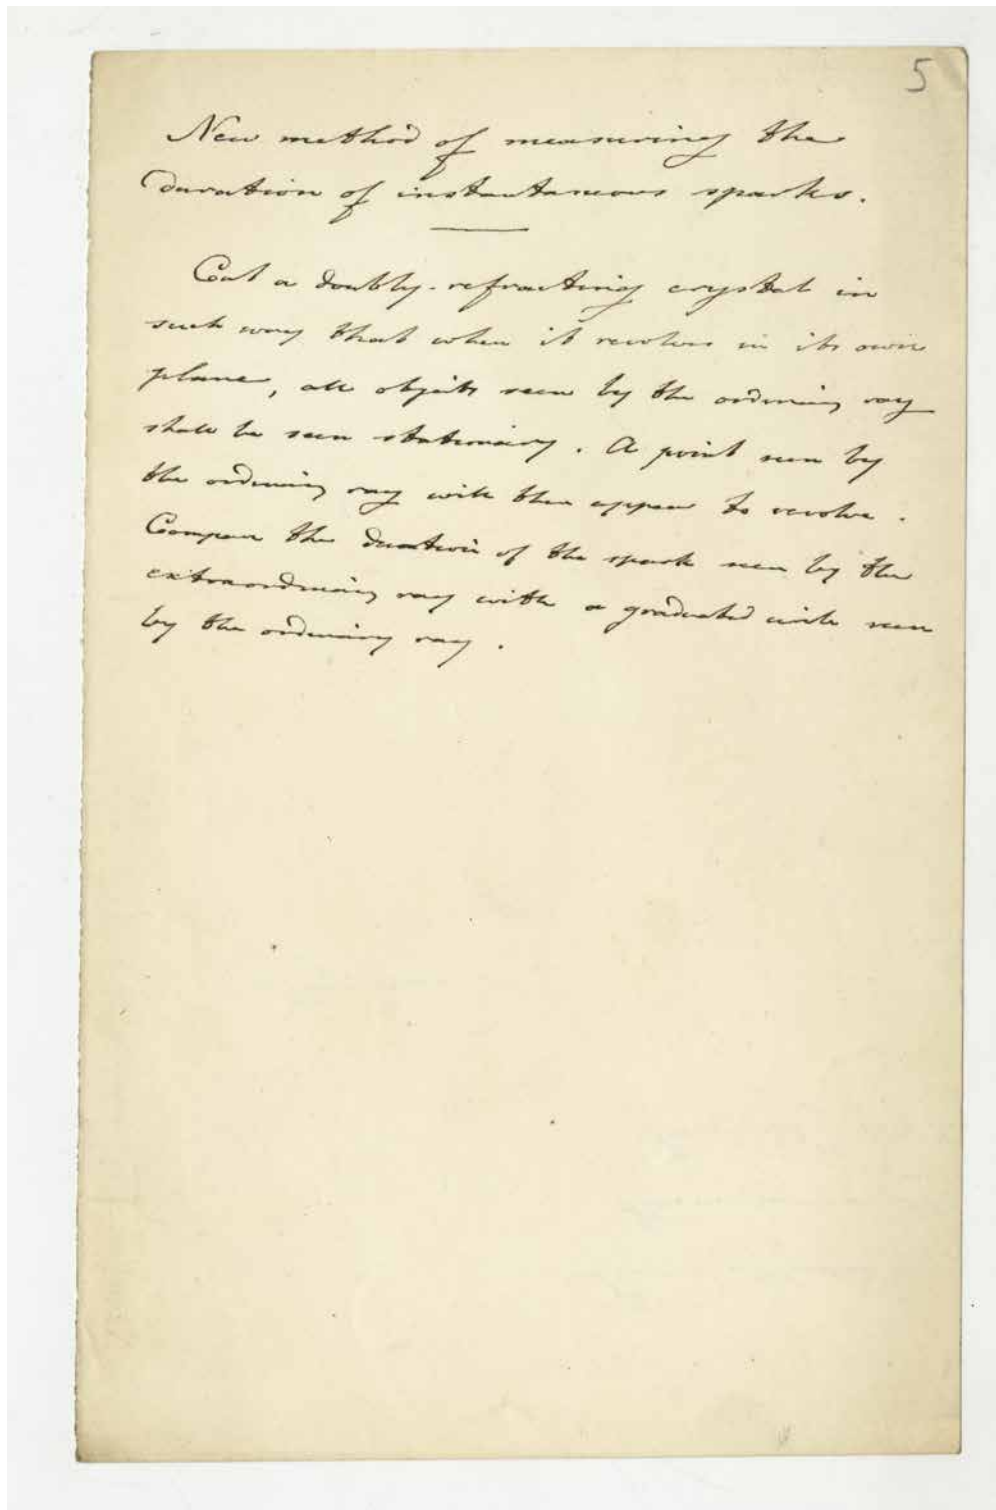 5
New method of measuring the
duration of instantaneous sparks.
Cut a doubly-refracting crystal in
such way that when it revolves in its own
plane, all objects seen by the ordinary ray
shall be seen stationary. A point seen by
the ordinary ray will then appear to revolve.
Compare the duration of the spark seen by the
extraordinary ray with a graduated circle seen
by the ordinary ray.